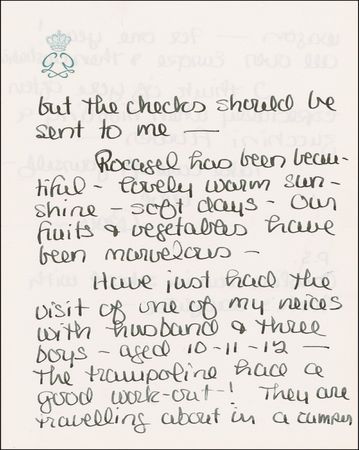 but the checks should be
sent to me —
Rocagel has been beau-
tiful - lovely warm sun-
shine - soft days - Our
fruits & vegetables have
been marvelous -
Have just had the
visit of one of my neices
with husband & three
boys - aged 10-11-12 —
The trampoline had a
good work-out-! They are
travelling about in a camper